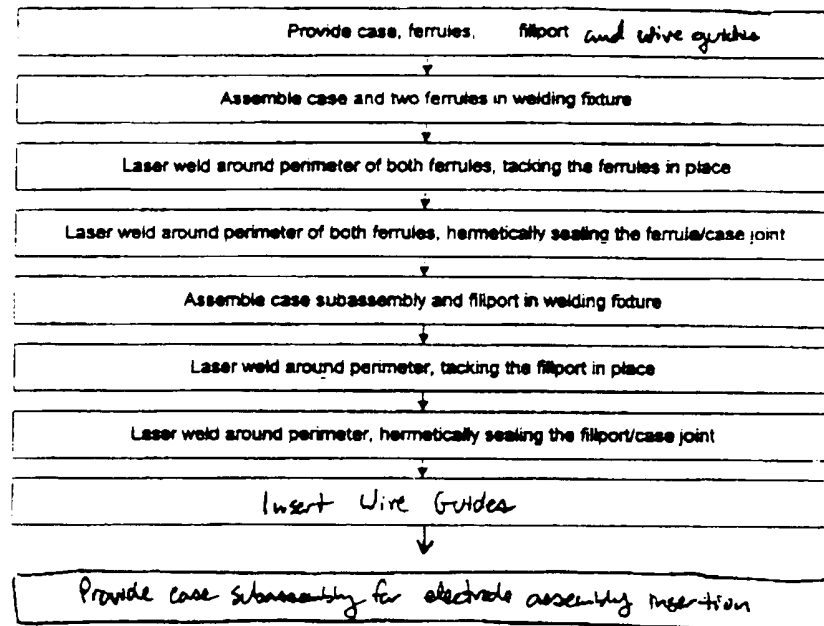 Provide case, ferrules, fillport and wire guides
Assemble case and two ferrules in welding fixture
Laser weld around perimeter of both ferrules, tacking the ferrules in place
Laser weld around perimeter of both ferrules, hermetically sealing the ferrule/case joint
Assemble case subassembly and fillport in welding fixture
Laser weld around perimeter, tacking the fillport in place
Laser weld around perimeter, hermetically sealing the fillport/case joint
Insert Wire Guides
Provide case subassembly for electrode assembly insertion